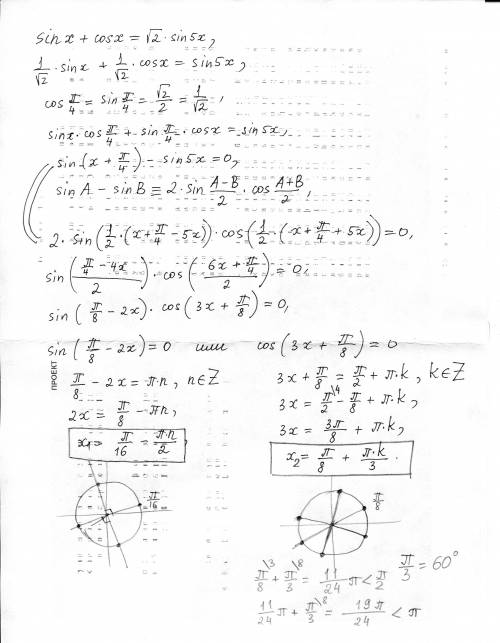 sin x + cos x = √2 · sin 5x,
1/√2 · sin x + 1/√2 · cos x = sin 5x,
cos π/4 = sin π/4 = √2/2 = 1/√2,
sin x · cos π/4 + sin π/4 · cos x = sin 5x,
sin (x + π/4) - sin 5x = 0,
sin A - sin B ≡ 2 · sin (A-B)/2 · cos (A+B)/2,
2 · sin (1/2 · (x + π/4 - 5x)) · cos (1/2 · (x + π/4 + 5x)) = 0,
sin ((π/4 - 4x)/2) · cos ((6x + π/4)/2) = 0,
sin (π/8 - 2x) · cos (3x + π/8) = 0,
sin (π/8 - 2x) = 0 или cos (3x + π/8) = 0
ПРОЕКТ
π/8 - 2x = π·n, n∈Z
2x = π/8 - πn,
x₁ = π/16 = π·n/2,
3x + π/8 = π/2 + π·k, k∈Z
3x = π/2 \4 - π/8 + π·k,
3x = 3π/8 + π·k,
x₂ = π/8 + π·k/3.
π/16
π/8
π/8 \3 + π/3 \8 = 11/24 π < π/2
π/3 = 60°
11/24 π + π/3 \8 = 19π/24 < π